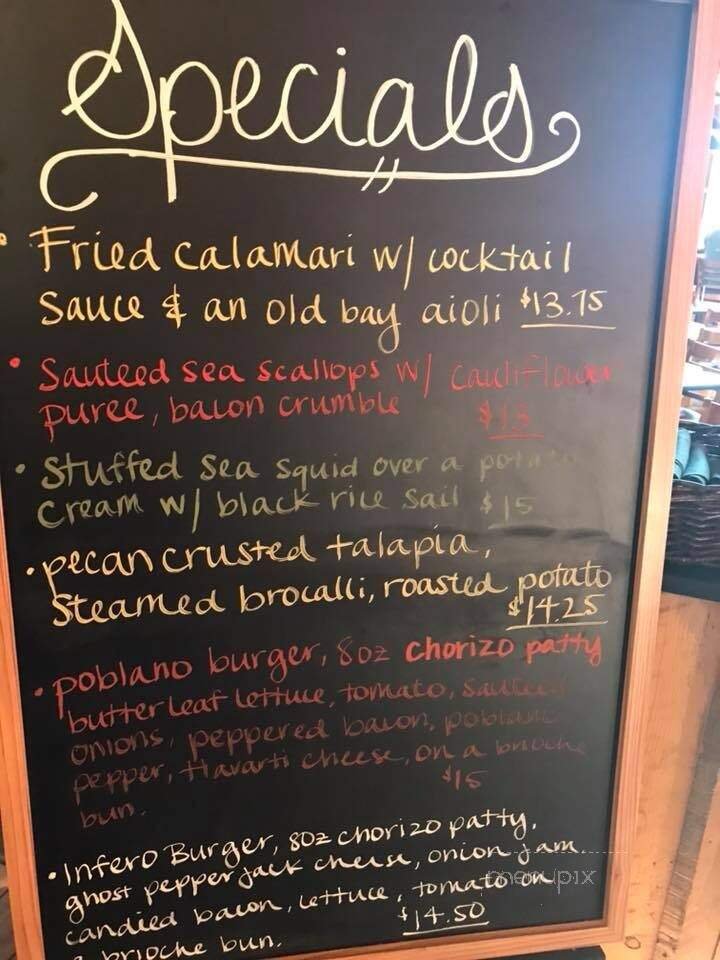 Specials
• Fried calamari w/ cocktail
sauce & an old bay aioli $13.75
• Sauteed sea scallops w/ cauliflower
puree, bacon crumble $13
• Stuffed sea squid over a potato
cream w/ black rice sail $15
• pecan crusted talapia,
steamed brocalli, roasted potato
$14.25
• poblano burger, 8oz chorizo patty
butter leaf lettuce, tomato, sauteed
onions, peppered bacon, poblano
pepper, Havarti cheese, on a brioche
$15
bun.
• Infero Burger, 8oz chorizo patty,
ghost pepper jack cheese, onion jam,
candied bacon, lettuce, tomato on
$14.50
a brioche bun.
menupix